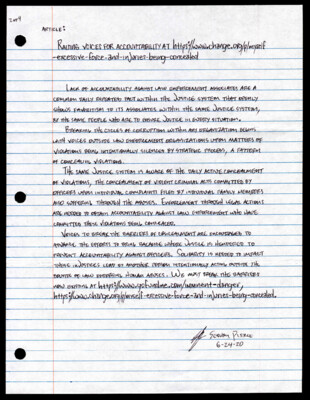 2 of 4
ARTICLE:
RAISING VOICES FOR ACCOUNTABILITY AT https://www.change.org/p/myself
-excessive-force-and-injuries-being-concealed
LACK OF ACCOUNTABILITY AGAINST LAW ENFORCEMENT ASSOCIATES ARE A
COMMON DAILY REPEATED FACT WITHIN THE JUSTICE SYSTEM THAT EVIDENTLY
SHOWS FAVORITISM TO ITS ASSOCIATES WITHIN THE SAME JUSTICE SYSTEM,
BY THE SAME PEOPLE WHO ARE TO ENSURE JUSTICE IN EVERY SITUATION.
BREAKING THE CYCLES OF CORRUPTION WITHIN ANY ORGANIZATION BEGINS
WITH VOICES OUTSIDE LAW ENFORCEMENT ORGANIZATIONS UPON MATTERS OF
VIOLATIONS BEING INTENTIONALLY SILENCED BY STRATEGIC PROCESS, A PATTERN OF
CONCEALING VIOLATIONS.
THE SAME JUSTICE SYSTEM IS AWARE OF THE DAILY ACTIVE CONCEALMENT
OF VIOLATIONS, THE CONCEALMENT OF VIOLENT CRIMINAL ACTS COMMITTED BY
OFFICERS UPON INDIVIDUAL COMPLAINTS FILED BY INDIVIDUAL FAMILY MEMBERS
ALSO SUFFERING THROUGH THE ABUSES. ENFORCEMENT THROUGH LEGAL ACTIONS
ARE NEEDED TO OBTAIN ACCOUNTABILITY AGAINST LAW ENFORCEMENT WHO HAVE
COMMITTED THESE VIOLATIONS BEING CONCEALED.
VOICES TO BREAK THE BARRIERS OF CONCEALMENT ARE ENCOURAGED TO
ADVANCE THE EFFORTS TO BRING BALANCE WHERE JUSTICE IS
PREVENT ACCOUNTABILITY AGAINST OFFICERS. SOLIDARITY IS NEEDED TO IMPACT
THESE INJUSTICES LEAD BY ANOTHER PERSON INTENTIONALLY ACTING OUTSIDE THE
DUTIES OF LAW ENFORCING HUMAN ABUSES. WE MUST BREAK THE BARRIERS
NOW EXISTING AT https://www.gofundme.com/imminent-danger,
https://www.change.org/p/myself-excessive-force-and-injuries-being-concealed.
PIERCE
6-24-20